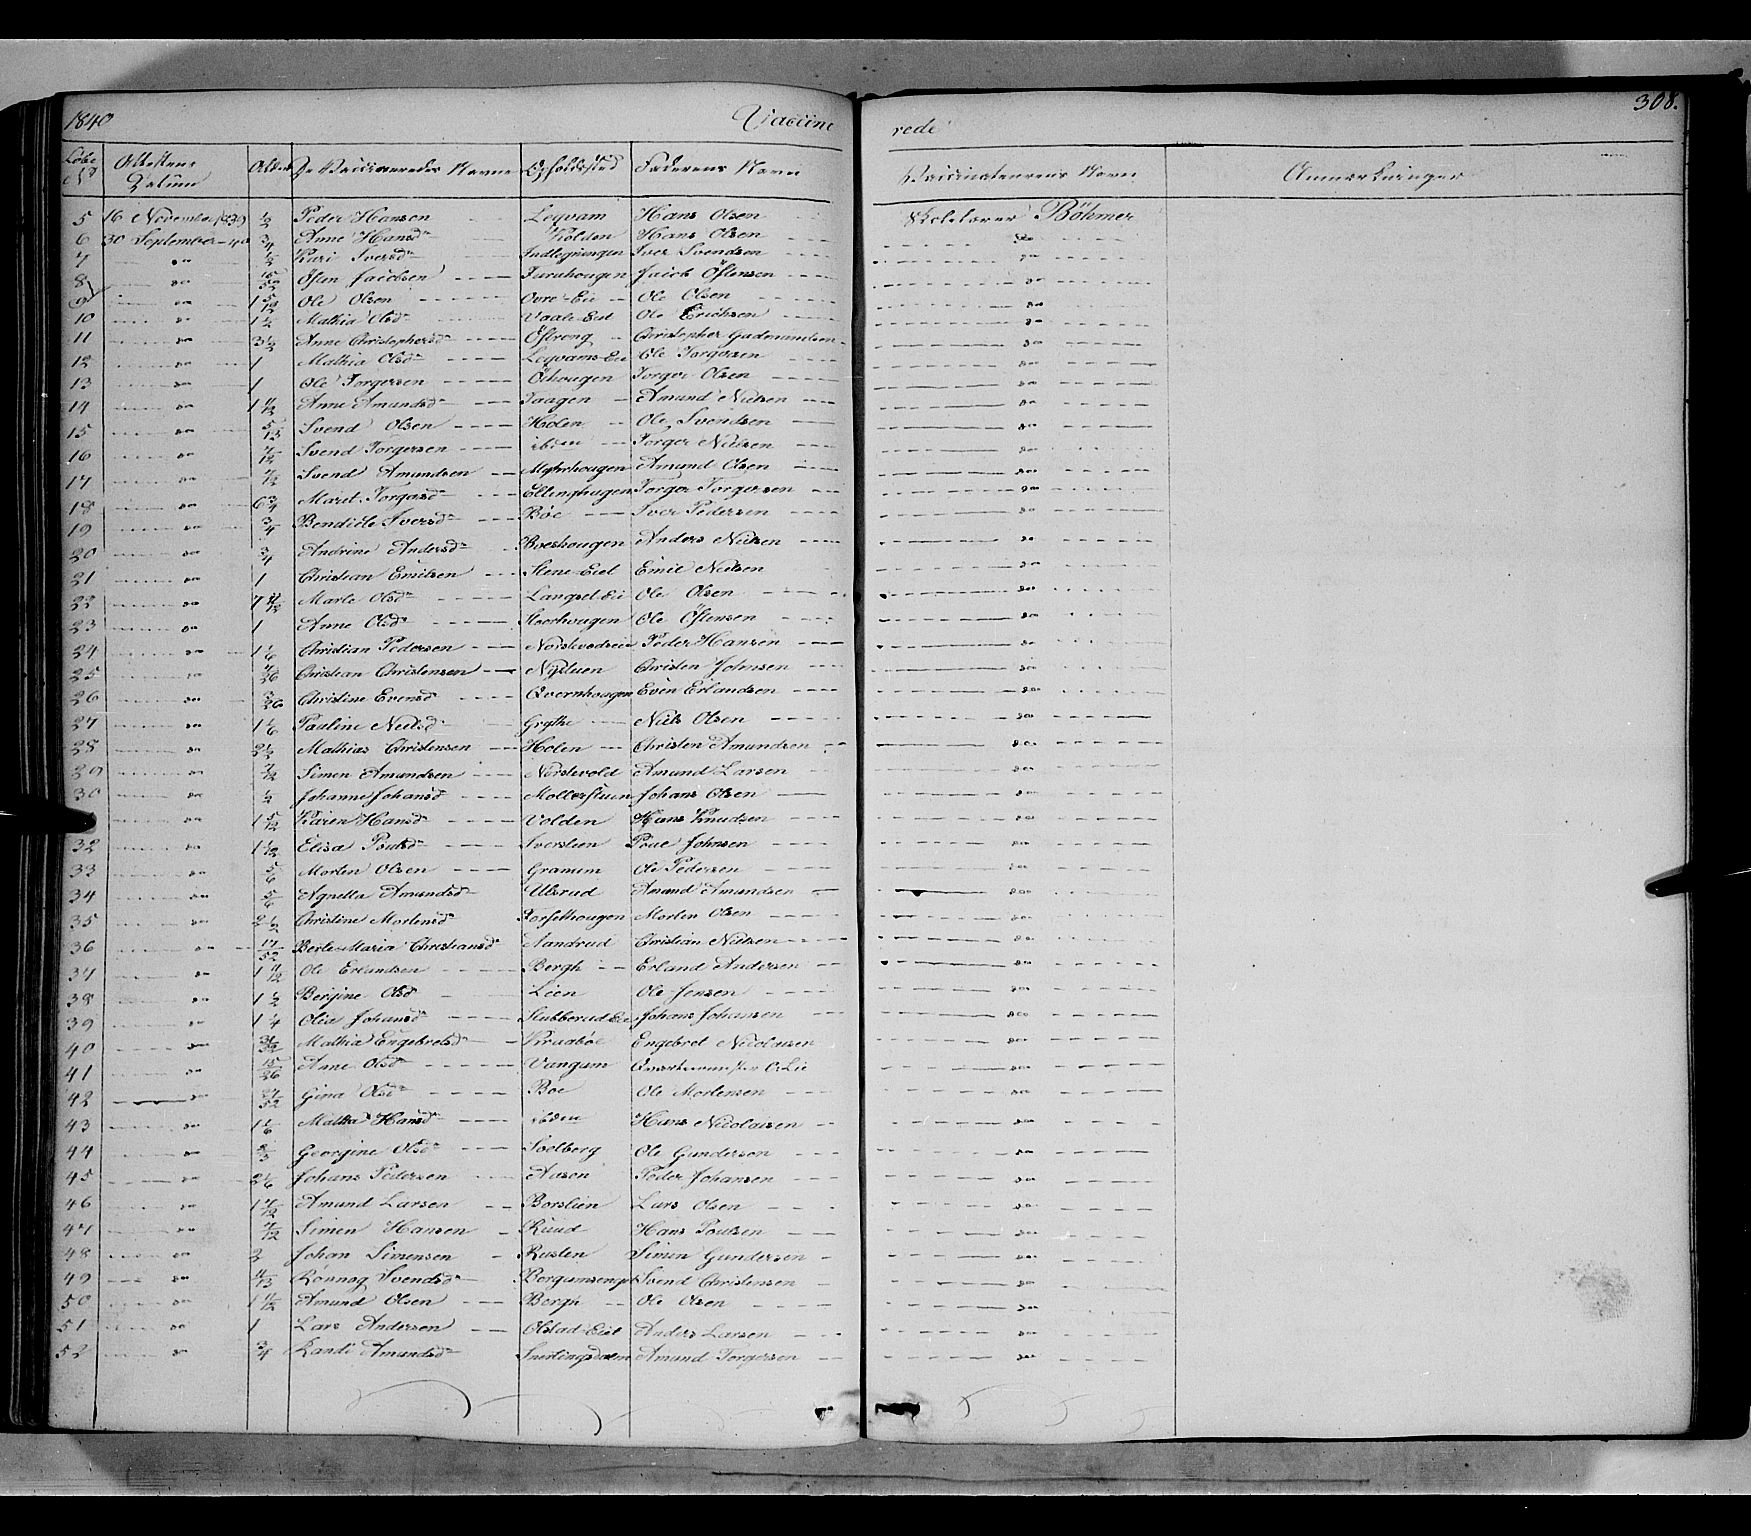 1840 Vaccine rede 308.
Löbe No Attestens Datum Alder De Vaccineredes Navne Opholdssted Faderens Navn Vaccinateurens Navn Anmærkninger
5 16 November 1839 1/2 Peder Hansen Leqvam Hans Olsen Skolelærer Böhmer
6 30 September 40 3/4 Anne Hansdr Kolden Hans Olsen do
7 do 1/2 Kari Iversdr Indlegningen Iver Svendsen do
8 do 15/52 Östen Jacobsen Furuhougen Jacob Östensen do
9 do 1 5/12 Ole Olsen Øvre-Eie Ole Olsen do
10 do 1 1/2 Mathia Olsdr Vaale-Eiet Ole Erichsen do
11 do 3 1/2 Anne Christophersdr Öfveng Christopher Gudmundsen do
12 do 1 Mathia Olsdr Leqvams-Eie Ole Torgersen do
13 do 1 Ole Torgersen Öihougen Torger Olsen do
14 do 1 11/12 Anne Amundsdr Haagen Amund Nielsen do
15 do 5/13 Svend Olsen Holen Ole Svendsen do
16 do 7/12 Svend Torgersen ibdem Torger Nielsen do
17 do 7/12 Svend Amundsen Myhrhougen Amund Olsen do
18 do 6 3/4 Marit Torgersdr Ellinghugen Torger Torgersen do
19 do 3/4 Bendicte Iversdr Bøe Iver Pedersen do
20 do 3/4 Andrine Andersdr Boeshougen Anders Nielsen do
21 do 1 Christian Emilsen Stene-Eiet Emil Nielsen do
22 do 7 11/12 Marte Olsdr Langset-Eie Ole Olsen do
23 do 1 Anne Olsdr Hoorhougen Ole Östensen do
24 do 1 1/6 Christian Pedersen Nordsvedseie Peder Hansen do
25 do 7/26 Christian Christensen Nystuen Christen Johnsen do
26 do 3/26 Christine Evensdr Qvernhougen Even Erlandsen do
27 do 1 1/6 Pauline Nielsdr Grythe Niels Olsen do
28 do 2 1/2 Mathias Christensen Holen Christen Amundsen do
29 do 7/12 Simen Amundsen Nordsvold Amund Larsen do
30 do 1/2 Johanne Johansdr Mollerstuen Johans Olsen do
do 1 5/12 Karen Hansdr Volden Hans Knudsen do
32 do 1 1/12 Elisa Poulsdr Iversteen Poul Johnsen do
33 do 5/6 Morten Olsen Gramm Ole Pedersen do
34 do 5/6 Agnetta Amundsdr Ulsrud Amund Amundsen do
35 do 2 1/2 Christine Mortensdr Forsethougen Morten Olsen do
36 do 17/52 Berte Maria Christiansdr Aandrud Christian Nielsen do
37 do 1 7/12 Ole Erlandsen Bergh Erland Andersen do
38 do 1 1/2 Bergine Olsdr Lien Ole Jensen do
39 do 1 1/4 Olea Johansdr Stubberud-Eie Johans Johansen do
40 do Mathia Engebretsdr Kruabøe Engebret Nicolaisen do
41 do 15/26 Anne Olsdr Vangum O Lie do
42 do 27/52 Gina Olsdr Bøe Ole Mortensen do
43 do 1 1/6 Mathea Hansdr ibdem Hans Nicolaisen do
44 do 2/3 Georgine Olsdr Soelberg Ole Gundersen do
45 do 2 1/6 Johans Pedersen Aasen Peder Johansen do
46 do 1 7/12 Amund Larsen Borslien Lars Olsen do
47 do 7/12 Simen Hansen Ruud Hans Poulsen do
48 do 2 Johan Simensen Rusten Simen Gundersen do
49 do 4/13 Rönnog Svendsdr Bergumsenget Svend Christensen do
50 do 1 11/12 Amund Olsen Bergh Ole Olsen do
51 do 1 Lars Andersen Olstad-Eiet Anders Larsen do
52 do 3/4 Randi Amundsdr Snertingsdalen Amund Torgersen do